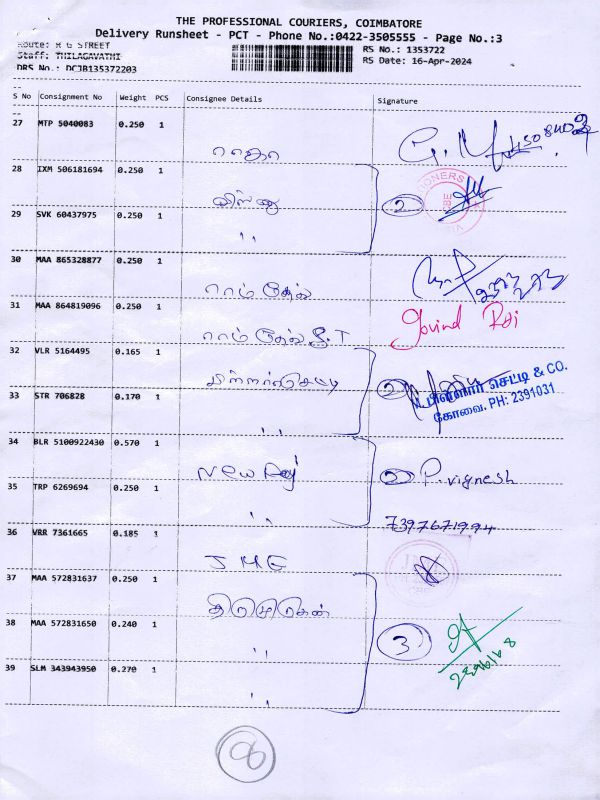 THE PROFESSIONAL COURIERS, COIMBATORE
Delivery Runsheet - PCT - Phone No.:0422-3505555 - Page No.:3
Route: R G STREET
Staff: THILAGAVATHI
DRS No.: DCJB135372203
RS No.: 1353722
RS Date: 16-Apr-2024
S No Consignment No Weight PCS Consignee Details Signature
27 MTP 5040083 0.250 1
ராகா
28 IXM 506181694 0.250 1
2
29 SVK 60437975 0.250 1
,,
30 MAA 865328877 0.250 1
ராம்தேவ்
31 MAA 864819096 0.250 1 Govind Raj
ராம்தேவ் S.T
32 VLR 5164495 0.165 1
2
பிள்ளார் செட்டி & CO.
கோவை. PH: 2391031
33 STR 706828 0.170 1
,,
34 BLR 5100922430 0.570 1
New 2 P. vignesh
35 TRP 6269694 0.250 1
,, 7397671994
36 VRR 7361665 0.185 1
J M G
37 MAA 572831637 0.250 1
திருமுருகன்
38 MAA 572831650 0.240 1
,, 3
39 SLM 343943950 0.270 1
,,